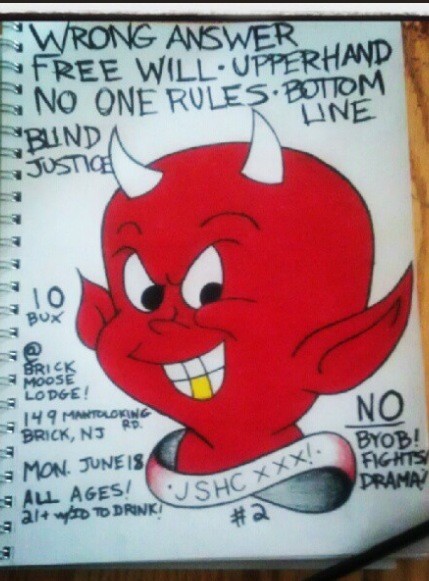 WRONG ANSWER
FREE WILL · UPPERHAND
NO ONE RULES · BOTTOM
LINE
BLIND
JUSTICE
10
BUX
@
BRICK
MOOSE
LODGE!
149 MANTOLOKING
RD.
BRICK, NJ
MON. JUNE 18
ALL AGES!
21+ w/ID TO DRINK!
· JSHC XXX! ·
#2
NO
BYOB!
FIGHTS/
DRAMA!